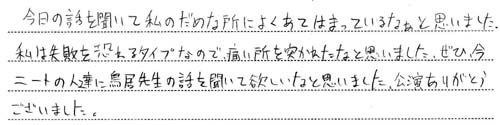 今日の話を聞いて私のだめな所によくあてはまっているなぁと思いました。
私は失敗を恐れるタイプなので、痛い所を突かれたなと思いました。ぜひ、今
ニートの人達に鳥居先生の話を聞いて欲しいなと思いました。公演ありがとう
ございました。